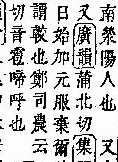 南滎陽人也
又廣韻蒲北切集又
日始加元服棄爾
謂敕也鄭司農云
切音雹啼呼也